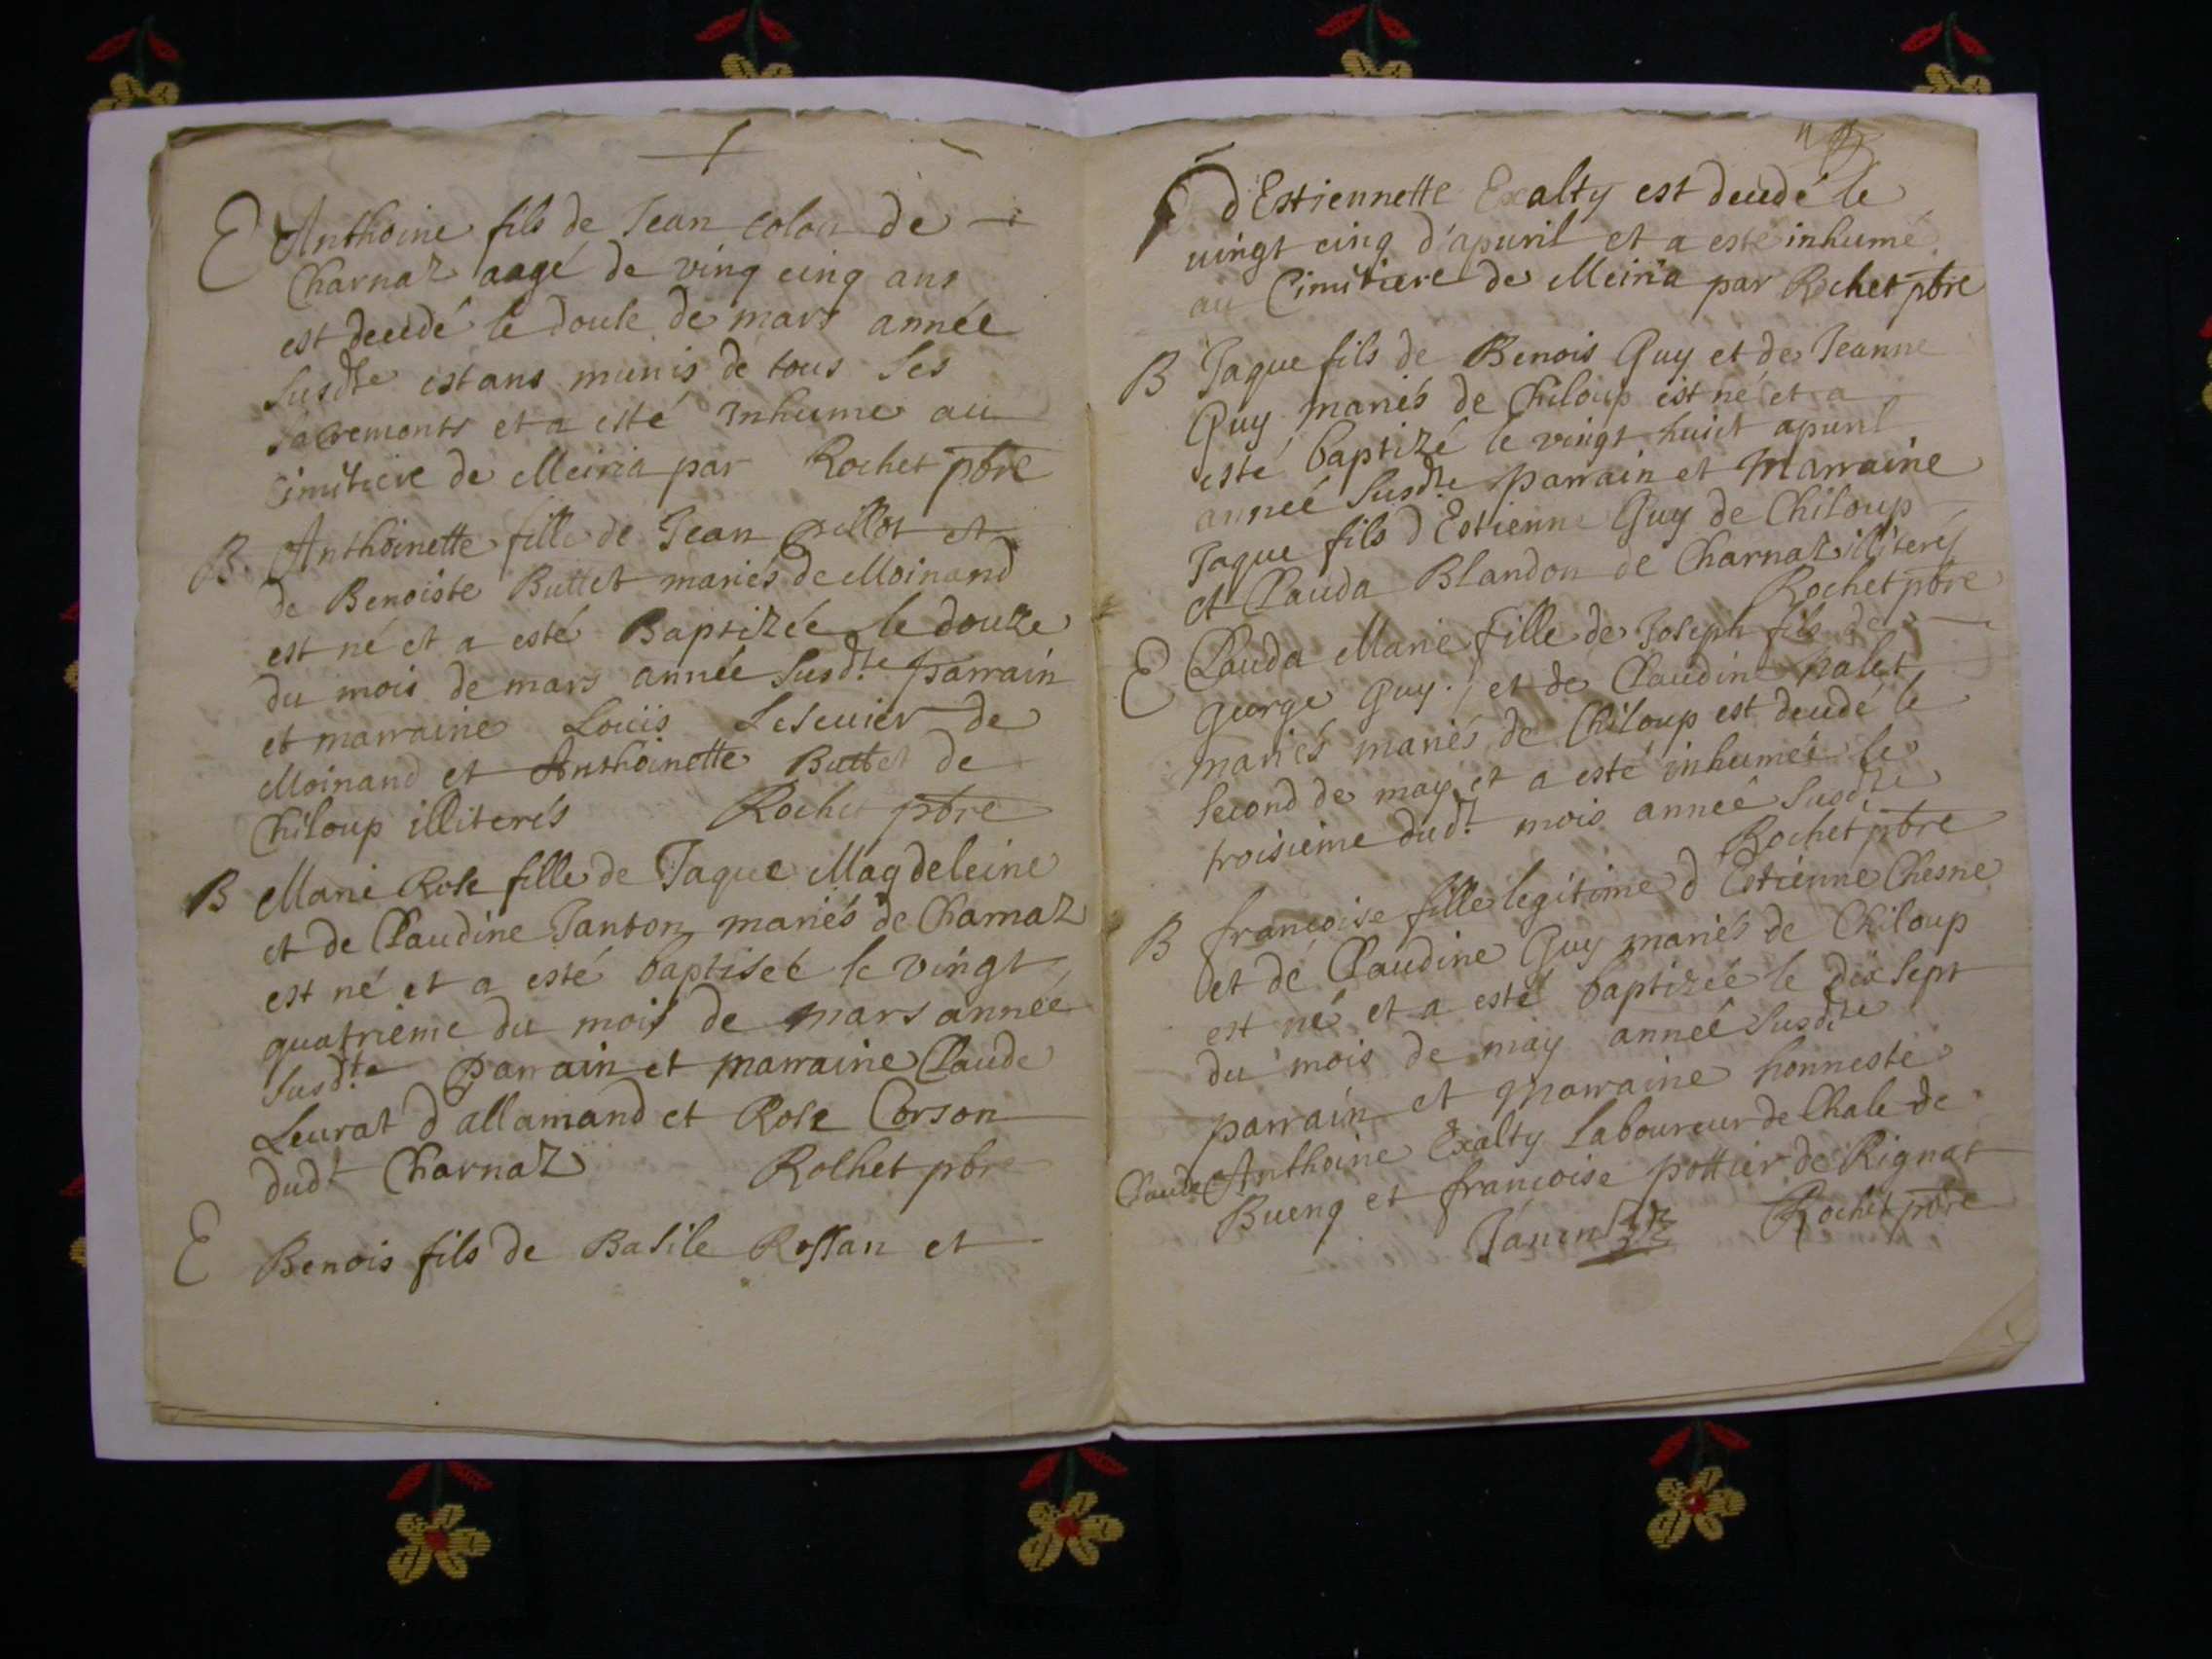 E Anthoine fils de Jean colon de
Charnaz aagé de ving cinq ans
est decedé le douse de mars année
susdte estans munis de tous ses
sacrements et a esté inhume au
Cimitiere de Meiria par Rochet pbre
B. Anthoinette fille de Jean pillot et
de Benoiste Buttet mariés de Moinand
est né et a esté Baptizée le douze
du mois de mars année susdte parrain
et marraine Louïs Lescuier de
Moinand et Anthoinette Buttet de
Chiloup illiterés Rochet pbre
B Marie Rose fille de Jaque Magdeleine
et de Claudine Janton mariés de Charnaz
est né et a esté baptiseé le vingt
quatrieme du mois de mars année
susdte Parrain et marraine Claude
Leurat d allamand et Rose Corson
dudt Charnaz Rochet pbre
E Benois fils de Basile Rossan et
d'Estiennette Exalty est decedé le
uingt cinq d'apuril et a esté inhumé
au Cimitiere de Meiria par Rochet pbre
B Jaque fils de Benois Guy et de Jeanne
Guy mariés de Chiloup est né et a
esté baptizé le vingt huict apuril
anneé susdte parrain et Marraine
Jaque fils d Estienne Guy de Chiloup
et Clauda Blandon de Charnaz illiterés
Rochet pbre
E Clauda Marie fille de Joseph fils de
george Guy et de Claudine palet
mariés mariés de Chiloup est decedé le
second de may et a esté inhumée le
troisieme dudt mois anneé susdte
Rochet pbre
B francoise fille legitime d Estienne Chesne
et de Claudine Guy mariés de Chiloup
est né et a esté baptizée le dix sept
du mois de may anneé susdte
parrain et marraine honneste
Claude Anthoine Exalty Laboureur de Chale de
Buenq et francoise pottier de Rignat
Janin Rochet pbre